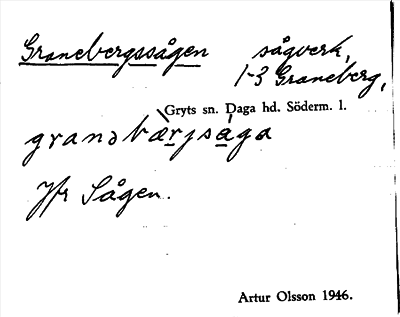 Granebergssågen sågverk,
1-3 Graneberg,
Gryts sn. Daga hd. Söderm. l.
granəbærjsága
Jfr Sågen.
Artur Olsson 1946.